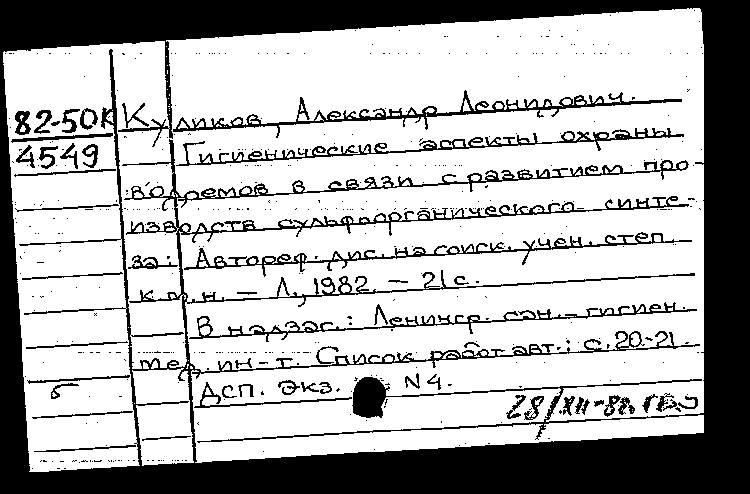 82-50К Куликов, Александр Леонидович.
4549 Гигиенические аспекты охраны
водоемов в связи с развитием про-
изводств сульфаорганического синте-
за: Автореф. дис. на соиск. учен. степ.
к.м.н. – Л., 1982. – 21 с.
В надзаг.: Ленингр. сан.-гигиен.
мед. ин-т. Список работ авт.: с. 20-21.
б ДСП. Экз. N 4.
28/XII-82.